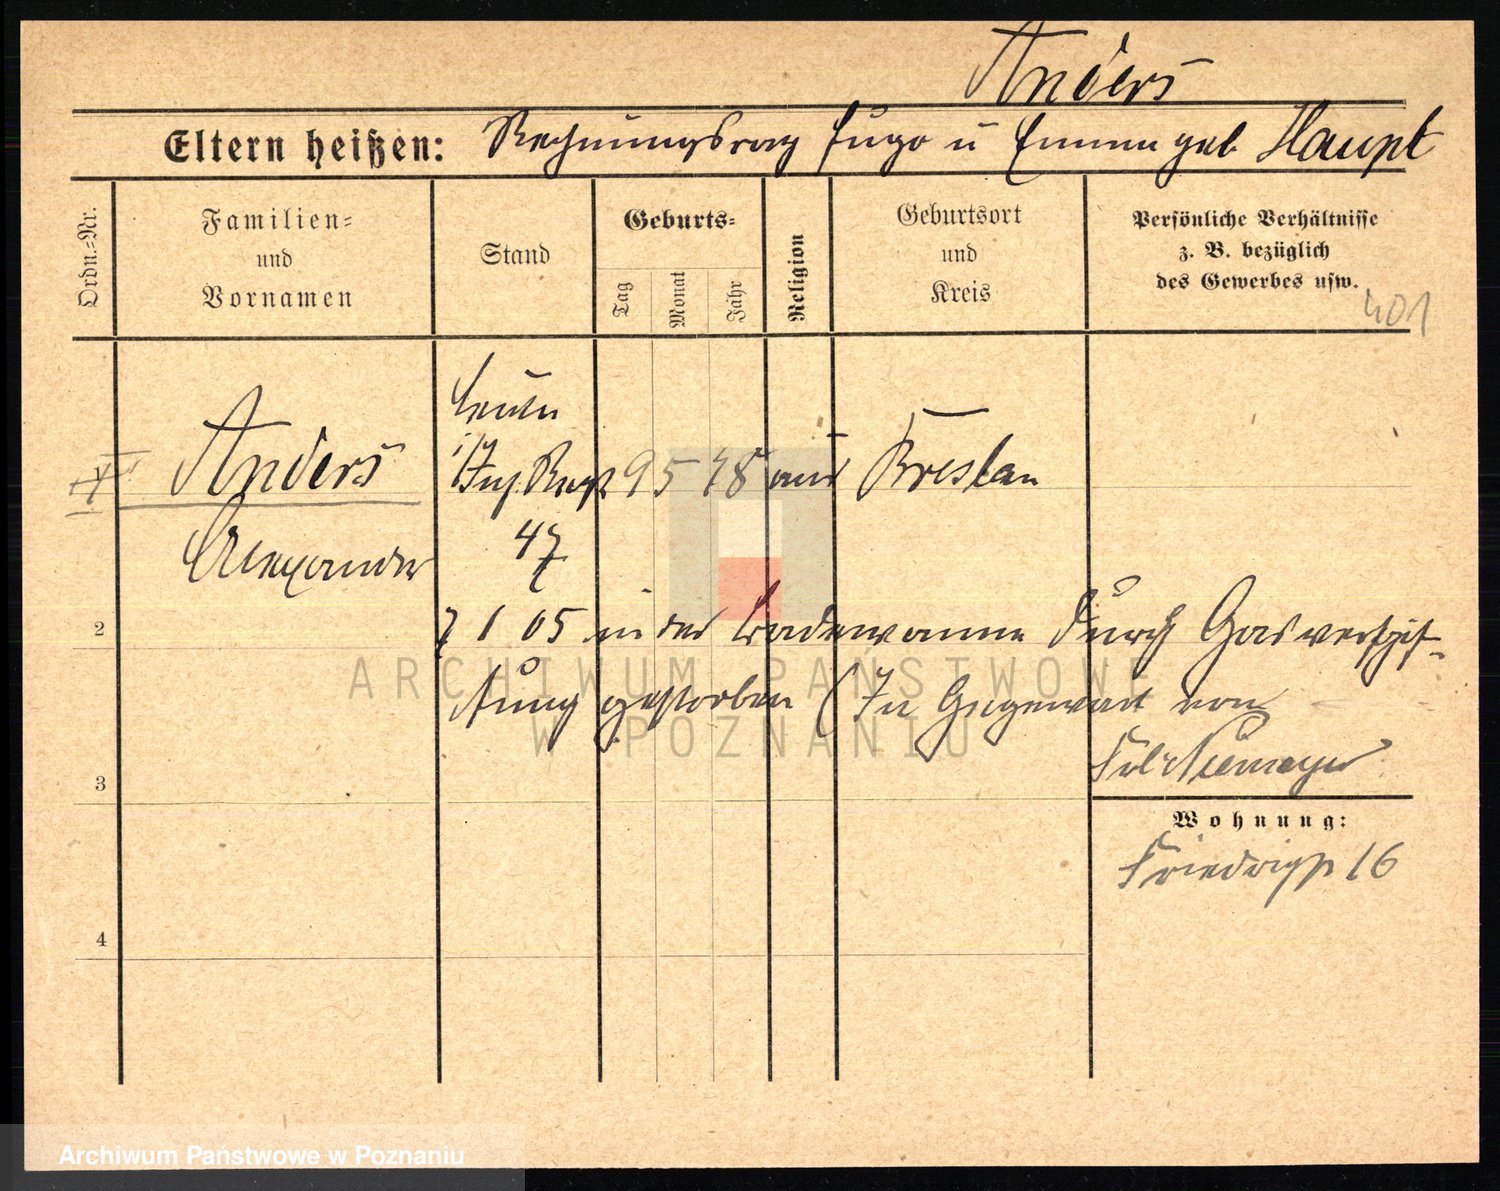 Anders
Eltern heißen: Rechnungsrat Hugo u Emma geb Haupt
Ordn.=Nr.
Familien=
und
Vornamen
Stand
Geburts=
Tag
Monat
Jahr
Religion
Geburtsort
und
Kreis
Persönliche Verhältnisse
z. B. bezüglich
des Gewerbes usw.
401
Leutn
Anders
i/Inf. Regt 9 5 78 Breslau
Alexander
47
2
1 05 in der Badewanne durch Gasvergif-
tung gestorben (In Gegenwart von
3
Wohnung:
16
4
ARCHIWUM PAŃSTWOWE
W POZNANIU
Archiwum Państwowe w Poznaniu